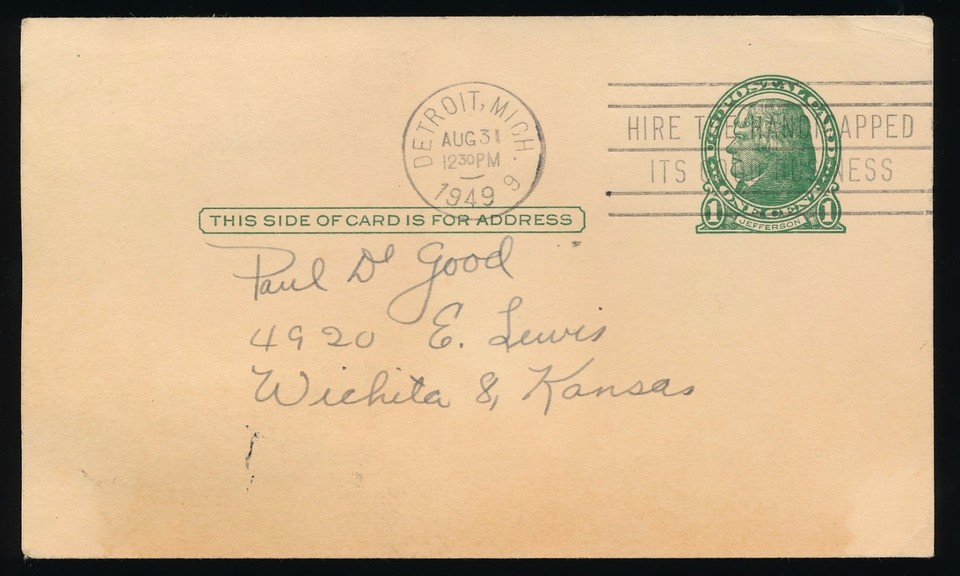 DETROIT, MICH.
AUG 31
12 30 PM
1949
9
HIRE THE HANDICAPPED
ITS GOOD BUSINESS
U.S. POSTAL CARD
ONE CENT
1 JEFFERSON 1
THIS SIDE OF CARD IS FOR ADDRESS
Paul D Good
4920 E. Lewis
Wichita 8, Kansas